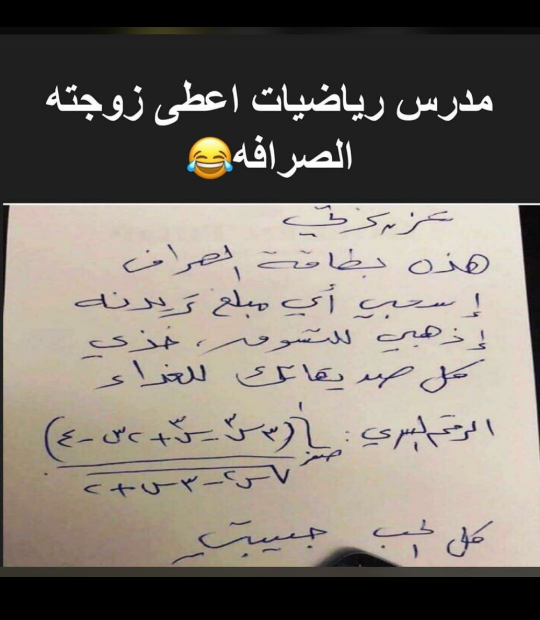 مدرس رياضيات اعطى زوجته
الصرافه😂
عزيزتي
هذه بطاقة الصراف
إسحبي أي مبلغ تريدنه
إذهبي للتسوق، خذي
كل صديقاتك للغداء
الرقم السري:
كل الحب حبيبتي